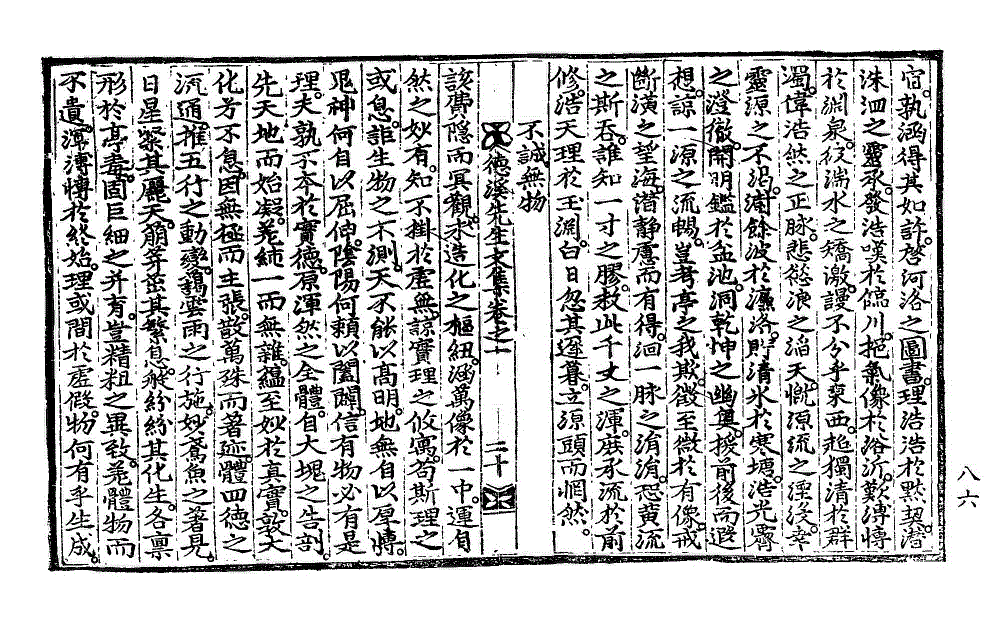 宿孰涵得其如許啓河洛之圖書理浩浩於黙契潜
洙泗之靈承發浩嘆於臨川挹氣像於浴沂歎溥博
於淵泉從湍水之矯激謾不分乎東西起獨清於群
濁偉浩然之正脉悲慾浪之滔天慨源流之湮沒幸
靈源之不渴溯餘波於濂洛貯清氷於寒塘浩光霽
之澄徹開明鑑於盆池洞乾坤之幽奥援前後而遐
想諒一源之流暢豈考亭之我欺徵至微於有像戒
斷潢之望海潜静慮而有得洄一脉之涓涓恐黄流
之斯吞誰知一寸之膠救此千丈之渾庶承流於前
修浩天理於玉淵白日忽其遲暮立源頭而惘然
不誠無物
德溪先生文集卷之一
二十
該費隱而冥觀承造化之樞紐涵萬像於一中運自
然之妙有知不掛於虛無諒實理之攸寓苟斯理之
或息詎生物之不測天不能以高明地無自以厚博
鬼神何自以屈伸陰陽何頼以闔闢信有物必有是
理夫孰不本於實德原渾然之全體自大塊之告剖
先天地而始凝羌純一而無雜蘊至妙於真實敦大
化方不息因無極而主張散萬殊而著迹體四德之
流通推五行之動變鶴雲雨之行施妙鳶魚之著見
日星粲其麗天萠芽茁其繁息縱紛紛其化生各禀
形於亭毒圖巨細之并育豈精粗之異致羌體物而
不遺渾溥博於終始理或間於虛假物何有乎生成
八六